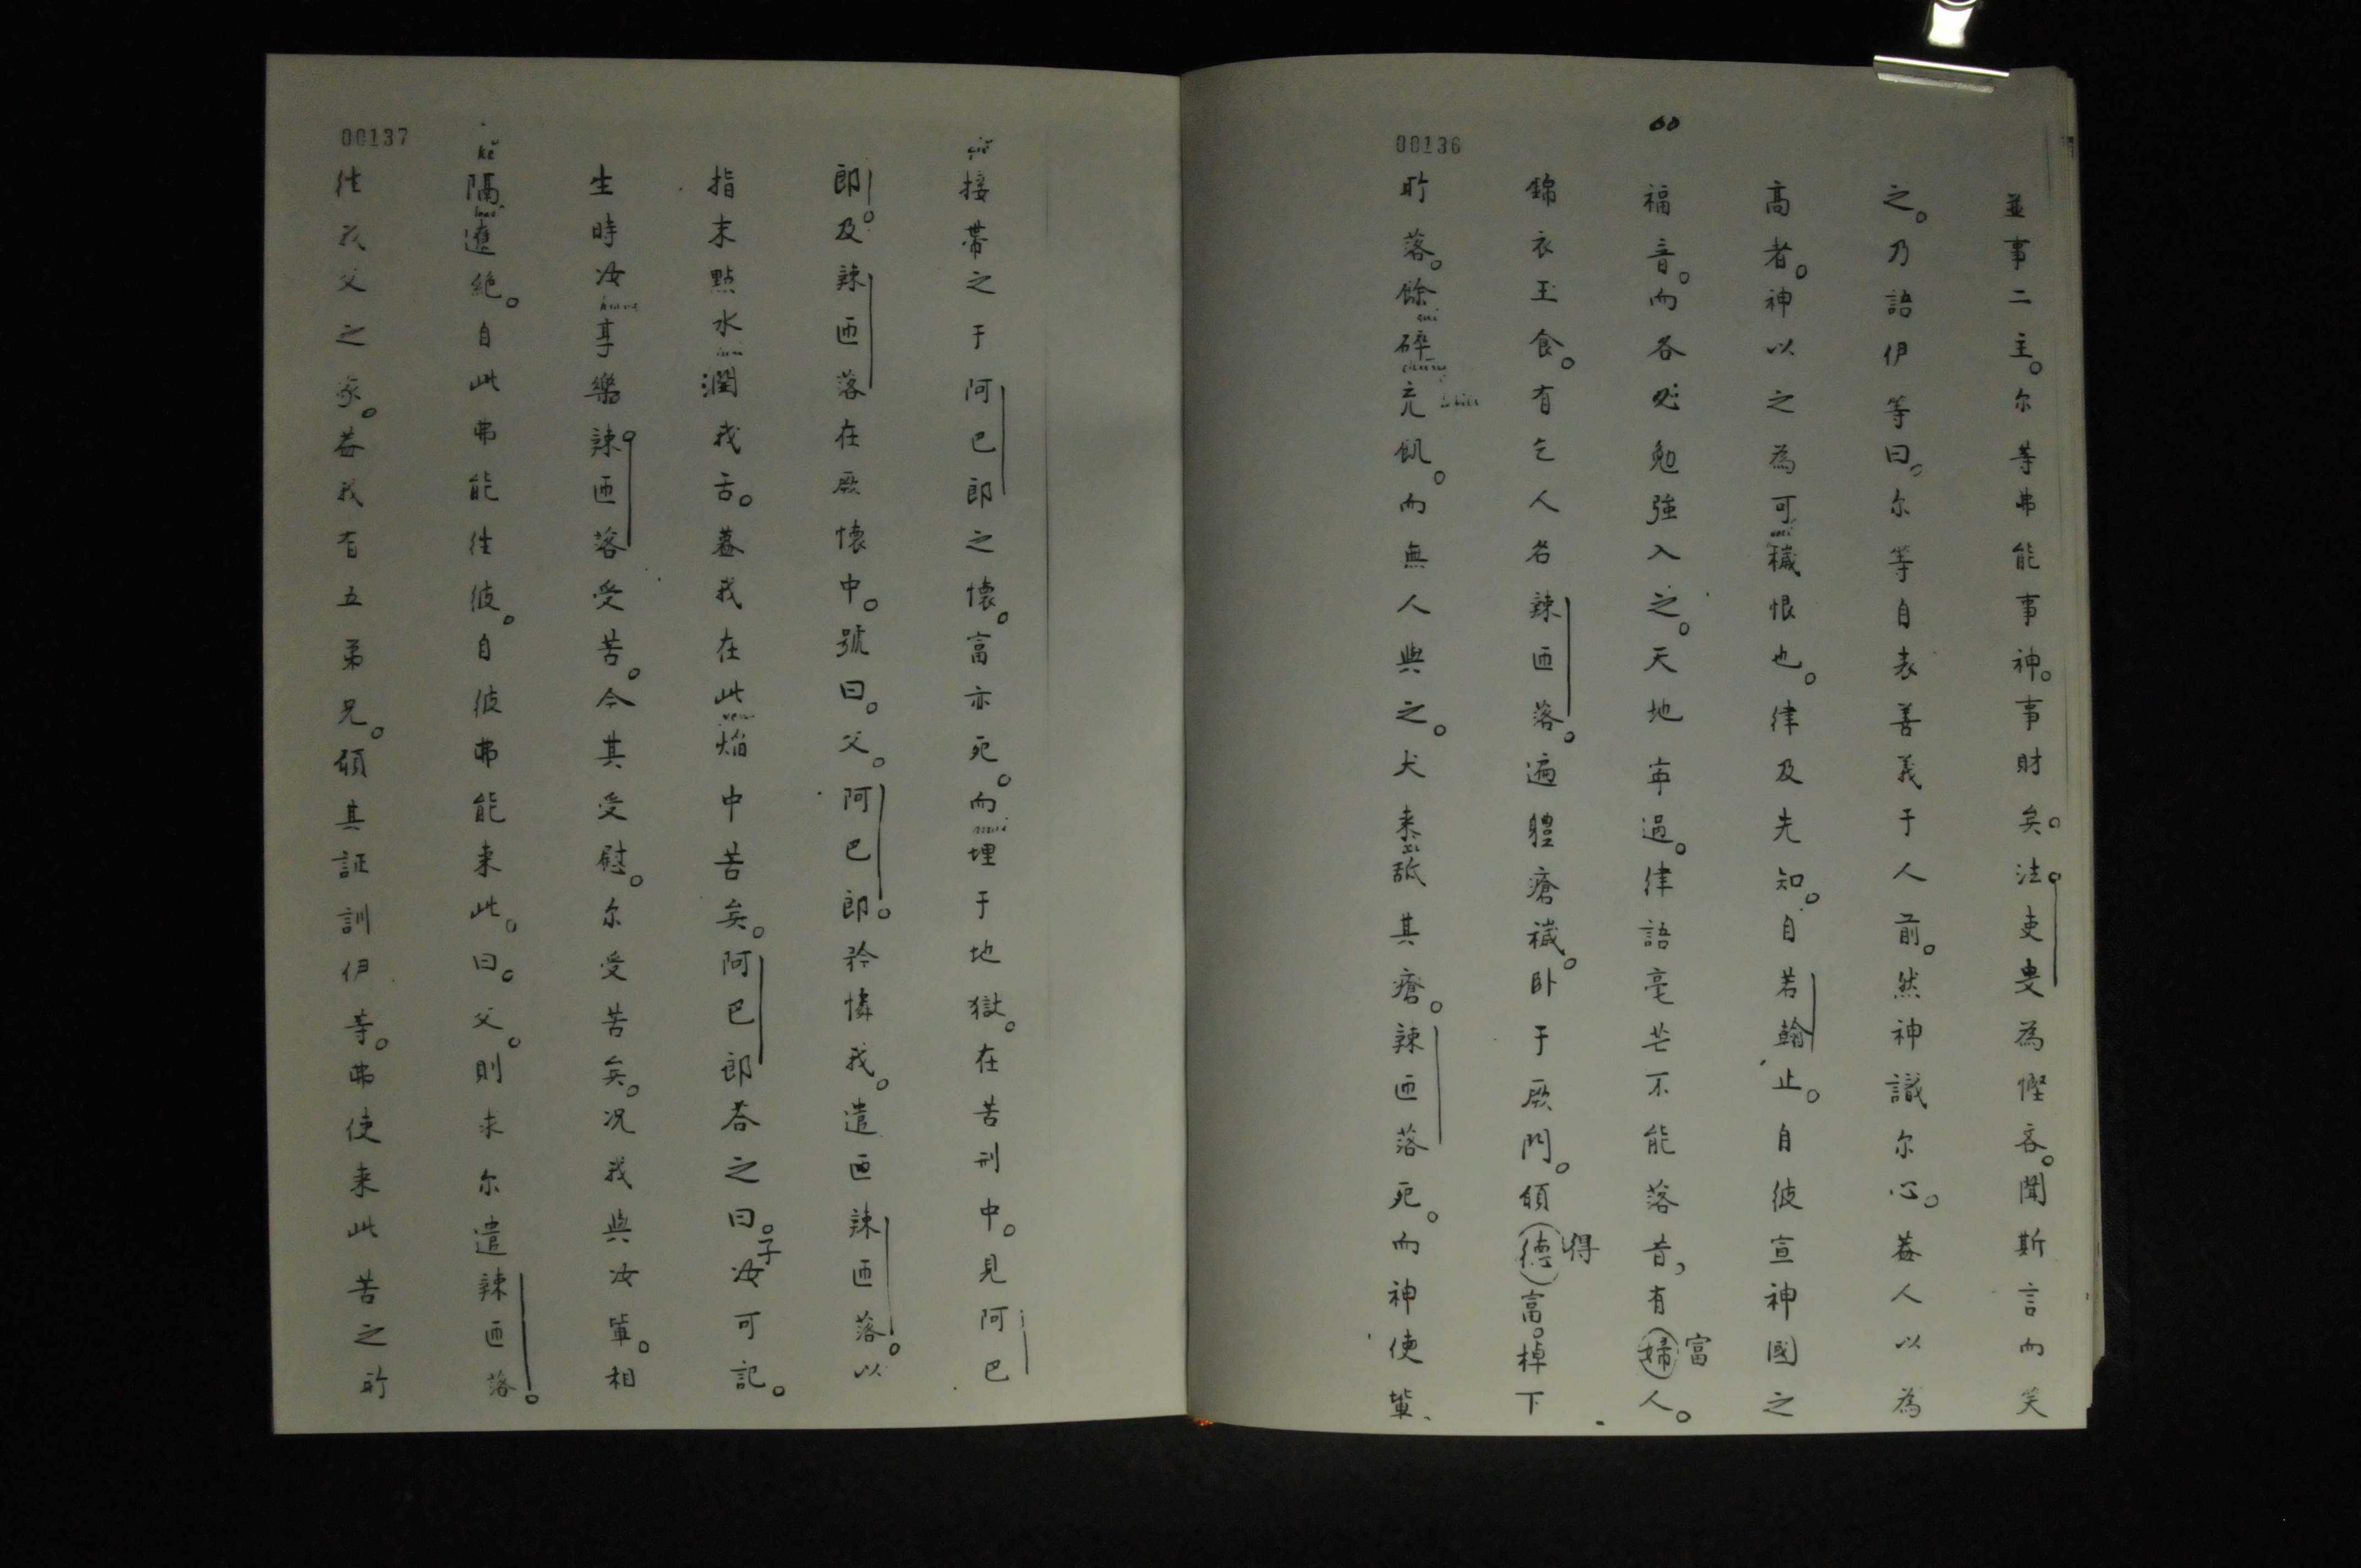 00136
並事二主。尔等弗能事神。事財矣。法吏叟為慳吝。聞斯言而笑
之。乃語伊等曰。尔等自表善義于人前。然神識尔心。蓋人以為
高者。神以之為可穢恨也。律及先知。自若翰止。自彼宣神國之
福音。而各必勉強入之。天地寧過。律語毫芒不能落昔，有婦富人。
錦衣玉食。有乞人名辣匝落。遍體瘡穢。臥于厥門。傾德得富。棹下
所落。餘碎充飢。而無人與之。犬来舐其瘡。辣匝落死。而神使輩、
00137
接帶之于阿巴郎之懷。富亦死。而埋于地獄。在苦刑中。見阿巴
郎。及辣匝落在厥懷中。號曰。父。阿巴郎。矜憐我。遣匝辣匝落。以
指末點水潤我舌。蓋我在此焰中苦矣。阿巴郎荅之曰。子汝可記。
生時汝享樂辣匝落受苦。今其受慰。尔受苦矣。况我與汝輩。相
隔遼絶。自此弗能徃彼。自彼弗能来此。曰。父。則求尔遣辣匝落。
徃我父之家。蓋我有五弟兄。傾其証訓伊等。弗使来此苦之所